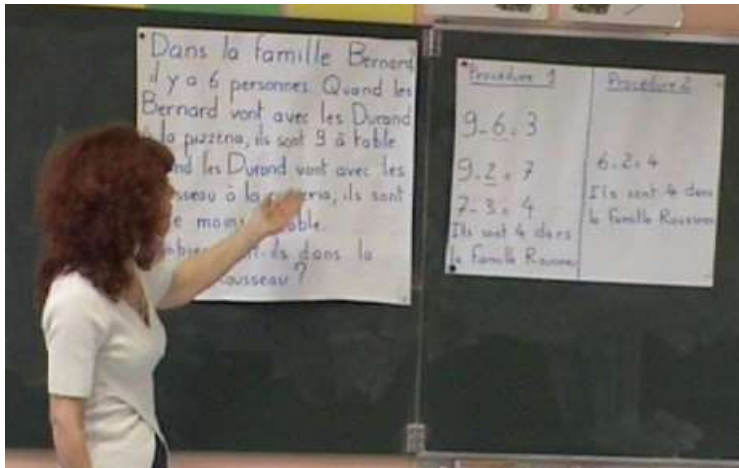 Dans la famille Bernard
il y a 6 personnes. Quand les
Bernard vont avec les Durand
à la pizzéria, ils sont 9 à table
les Durand vont avec les
à la pizzeria, ils sont
moins
dans la
Rousseau ?
Procédure 1
9-6=3
9-2=7
7-3=4
Ils sont 4 dans
la famille Rousseau
Procédure 2
6-2=4
Ils sont 4 dans
la famille Rousseau